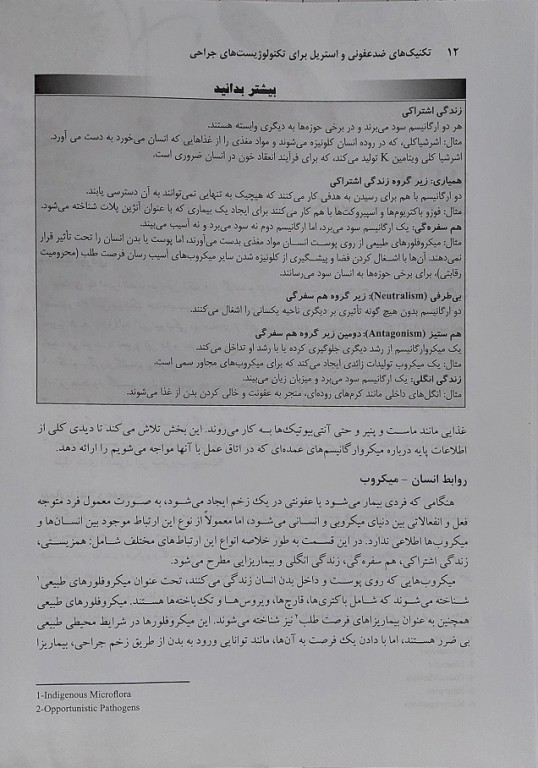 ۱۲ تکنیک‌های ضدعفونی و استریل برای تکنولوژیست‌های جراحی
بیشتر بدانید
زندگی اشتراکی
هر دو ارگانیسم سود می‌برند و در برخی حوزه‌ها به دیگری وابسته هستند.
مثال: اشرشیاکلی، که در روده انسان کلونیزه می‌شوند و مواد مغذی را از غذاهایی که انسان می‌خورد به دست می آورد.
اشرشیا کلی ویتامین K تولید می‌کند، که برای فرآیند انعقاد خون در انسان ضروری است.
همیاری: زیر گروه زندگی اشتراکی
دو ارگانیسم با هم برای رسیدن به هدفی کار می‌کنند که هیچیک به تنهایی نمی‌توانند به آن دسترسی یابند.
مثال: فوزو باکتریوم‌ها و اسپیروکت‌ها با هم کار می‌کنند برای ایجاد یک بیماری که با عنوان آنژین پلات شناخته می‌شود.
هم سفره‌گی: یک ارگانیسم سود می‌برد، اما ارگانیسم دوم نه سود می‌برد و نه آسیب می‌بیند.
مثال: میکروفلورهای طبیعی از روی پوست انسان مواد مغذی بدست می‌آورند، اما پوست یا بدن انسان را تحت تأثیر قرار
نمی‌دهند. آن‌ها با اشغال کردن فضا و پیشگیری از کلونیزه شدن سایر میکروب‌های آسیب رسان فرصت طلب (محرومیت
رقابتی)، برای برخی حوزه‌ها به انسان سود می‌رسانند.
بی‌طرفی (Neutralism): زیر گروه هم سفرگی
دو ارگانیسم بدون هیچ گونه تأثیری بر دیگری ناحیه یکسانی را اشغال می‌کنند.
هم ستیز (Antagonism): دومین زیر گروه هم سفرگی
یک میکروارگانیسم از رشد دیگری جلوگیری کرده یا با رشد او تداخل می‌کند.
مثال: یک میکروب تولیدات زائدی ایجاد می‌کند که برای میکروب‌های مجاور سمی است.
زندگی انگلی: یک ارگانیسم سود می‌برد و میزبان زیان می‌بیند.
مثال: انگل‌های داخلی مانند کرم‌های روده‌ای، منجر به عفونت و خالی کردن بدن از غذا می‌شوند.
غذایی مانند ماست و پنیر و حتی آنتی‌بیوتیک‌ها به کار می‌روند. این بخش تلاش می‌کند تا دیدی کلی از
اطلاعات پایه درباره میکروارگانیسم‌های عمده‌ای که در اتاق عمل با آنها مواجه می‌شویم را ارائه دهد.
روابط انسان – میکروب
هنگامی که فردی بیمار می‌شود یا عفونتی در یک زخم ایجاد می‌شود، به صورت معمول فرد متوجه
فعل و انفعالاتی بین دنیای میکروبی و انسانی می‌شود، اما معمولاً از نوع این ارتباط موجود بین انسان‌ها و
میکروب‌ها اطلاعی ندارد. در این قسمت به طور خلاصه انواع این ارتباط‌های مختلف شامل: همزیستی،
زندگی اشتراکی، هم سفره‌گی، زندگی انگلی و بیماریزایی مطرح می‌شود.
میکروب‌هایی که روی پوست و داخل بدن انسان زندگی می‌کنند، تحت عنوان میکروفلورهای طبیعی۱
شناخته می‌شوند که شامل باکتری‌ها، قارچ‌ها، ویروس‌ها و تک‌یاخته‌ها هستند. میکروفلورهای طبیعی
همچنین به عنوان بیماریزاهای فرصت طلب۲ نیز شناخته می‌شوند. این میکروفلورها در شرایط محیطی طبیعی
بی ضرر هستند، اما با دادن یک فرصت به آن‌ها، مانند توانایی ورود به بدن از طریق زخم جراحی، بیماریزا
1-Indigenous Microflora
2-Opportunistic Pathogens